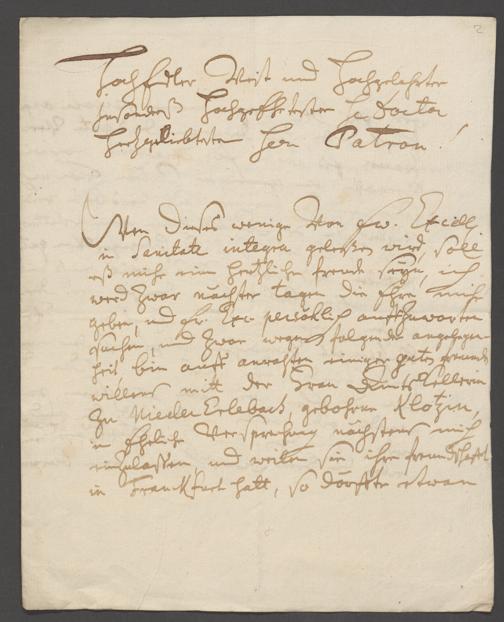 HochEdler Vest und Hochgelahrter
insonders Hochgeehrtester H. Doctor
Herzgeliebtester Herr Patron!
Wen dieses wenige Von Ew. Excell.
in Sanitate integra gelesen wird, soll
es mihr ein hertzliche freude seyn, ich
werd zwar nächster tagen die Ehre mihr
geben, und Ew. Exc. persöhlich auffzuwarten
suchen, und zwar wegen folgender angelegen-
heit bin auff anrathen einiger guten freunde
willens mitt der Frau
zu Nieder Erlebach, gebohrne Klotzin,
in Ehliche Versprechung nächstens mich
einzulassen, und weilen sie ihre freundschafft
in Franckfurt hatt, so dörffte etwan